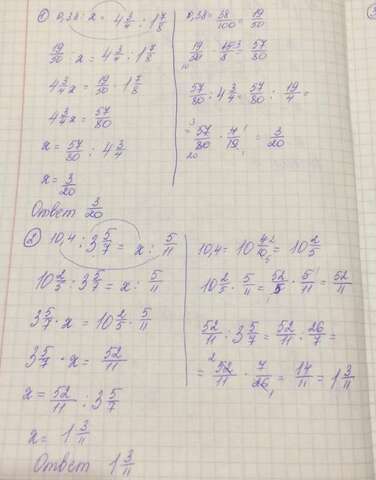 ① 0,38 : x = 4 3/4 : 1 7/8
19/50 : x = 4 3/4 : 1 7/8
4 3/4 x = 19/50 · 1 7/8
4 3/4 x = 57/80
x = 57/80 : 4 3/4
x = 3/20
Ответ 3/20
0,38 = 38/100 = 19/50
19/50 · 15/8 = 57/80
57/80 : 4 3/4 = 57/80 : 19/4 =
= 57/80 · 4/19 = 3/20
② 10,4 : 3 5/7 = x : 5/11
10 2/5 : 3 5/7 = x : 5/11
3 5/7 · x = 10 2/5 · 5/11
3 5/7 · x = 52/11
x = 52/11 : 3 5/7
x = 1 3/11
Ответ 1 3/11
10,4 = 10 4/10 = 10 2/5
10 2/5 · 5/11 = 52/5 · 5/11 = 52/11
52/11 · 3 5/7 = 52/11 · 26/7 =
= 52/11 · 7/26 = 14/11 = 1 3/11